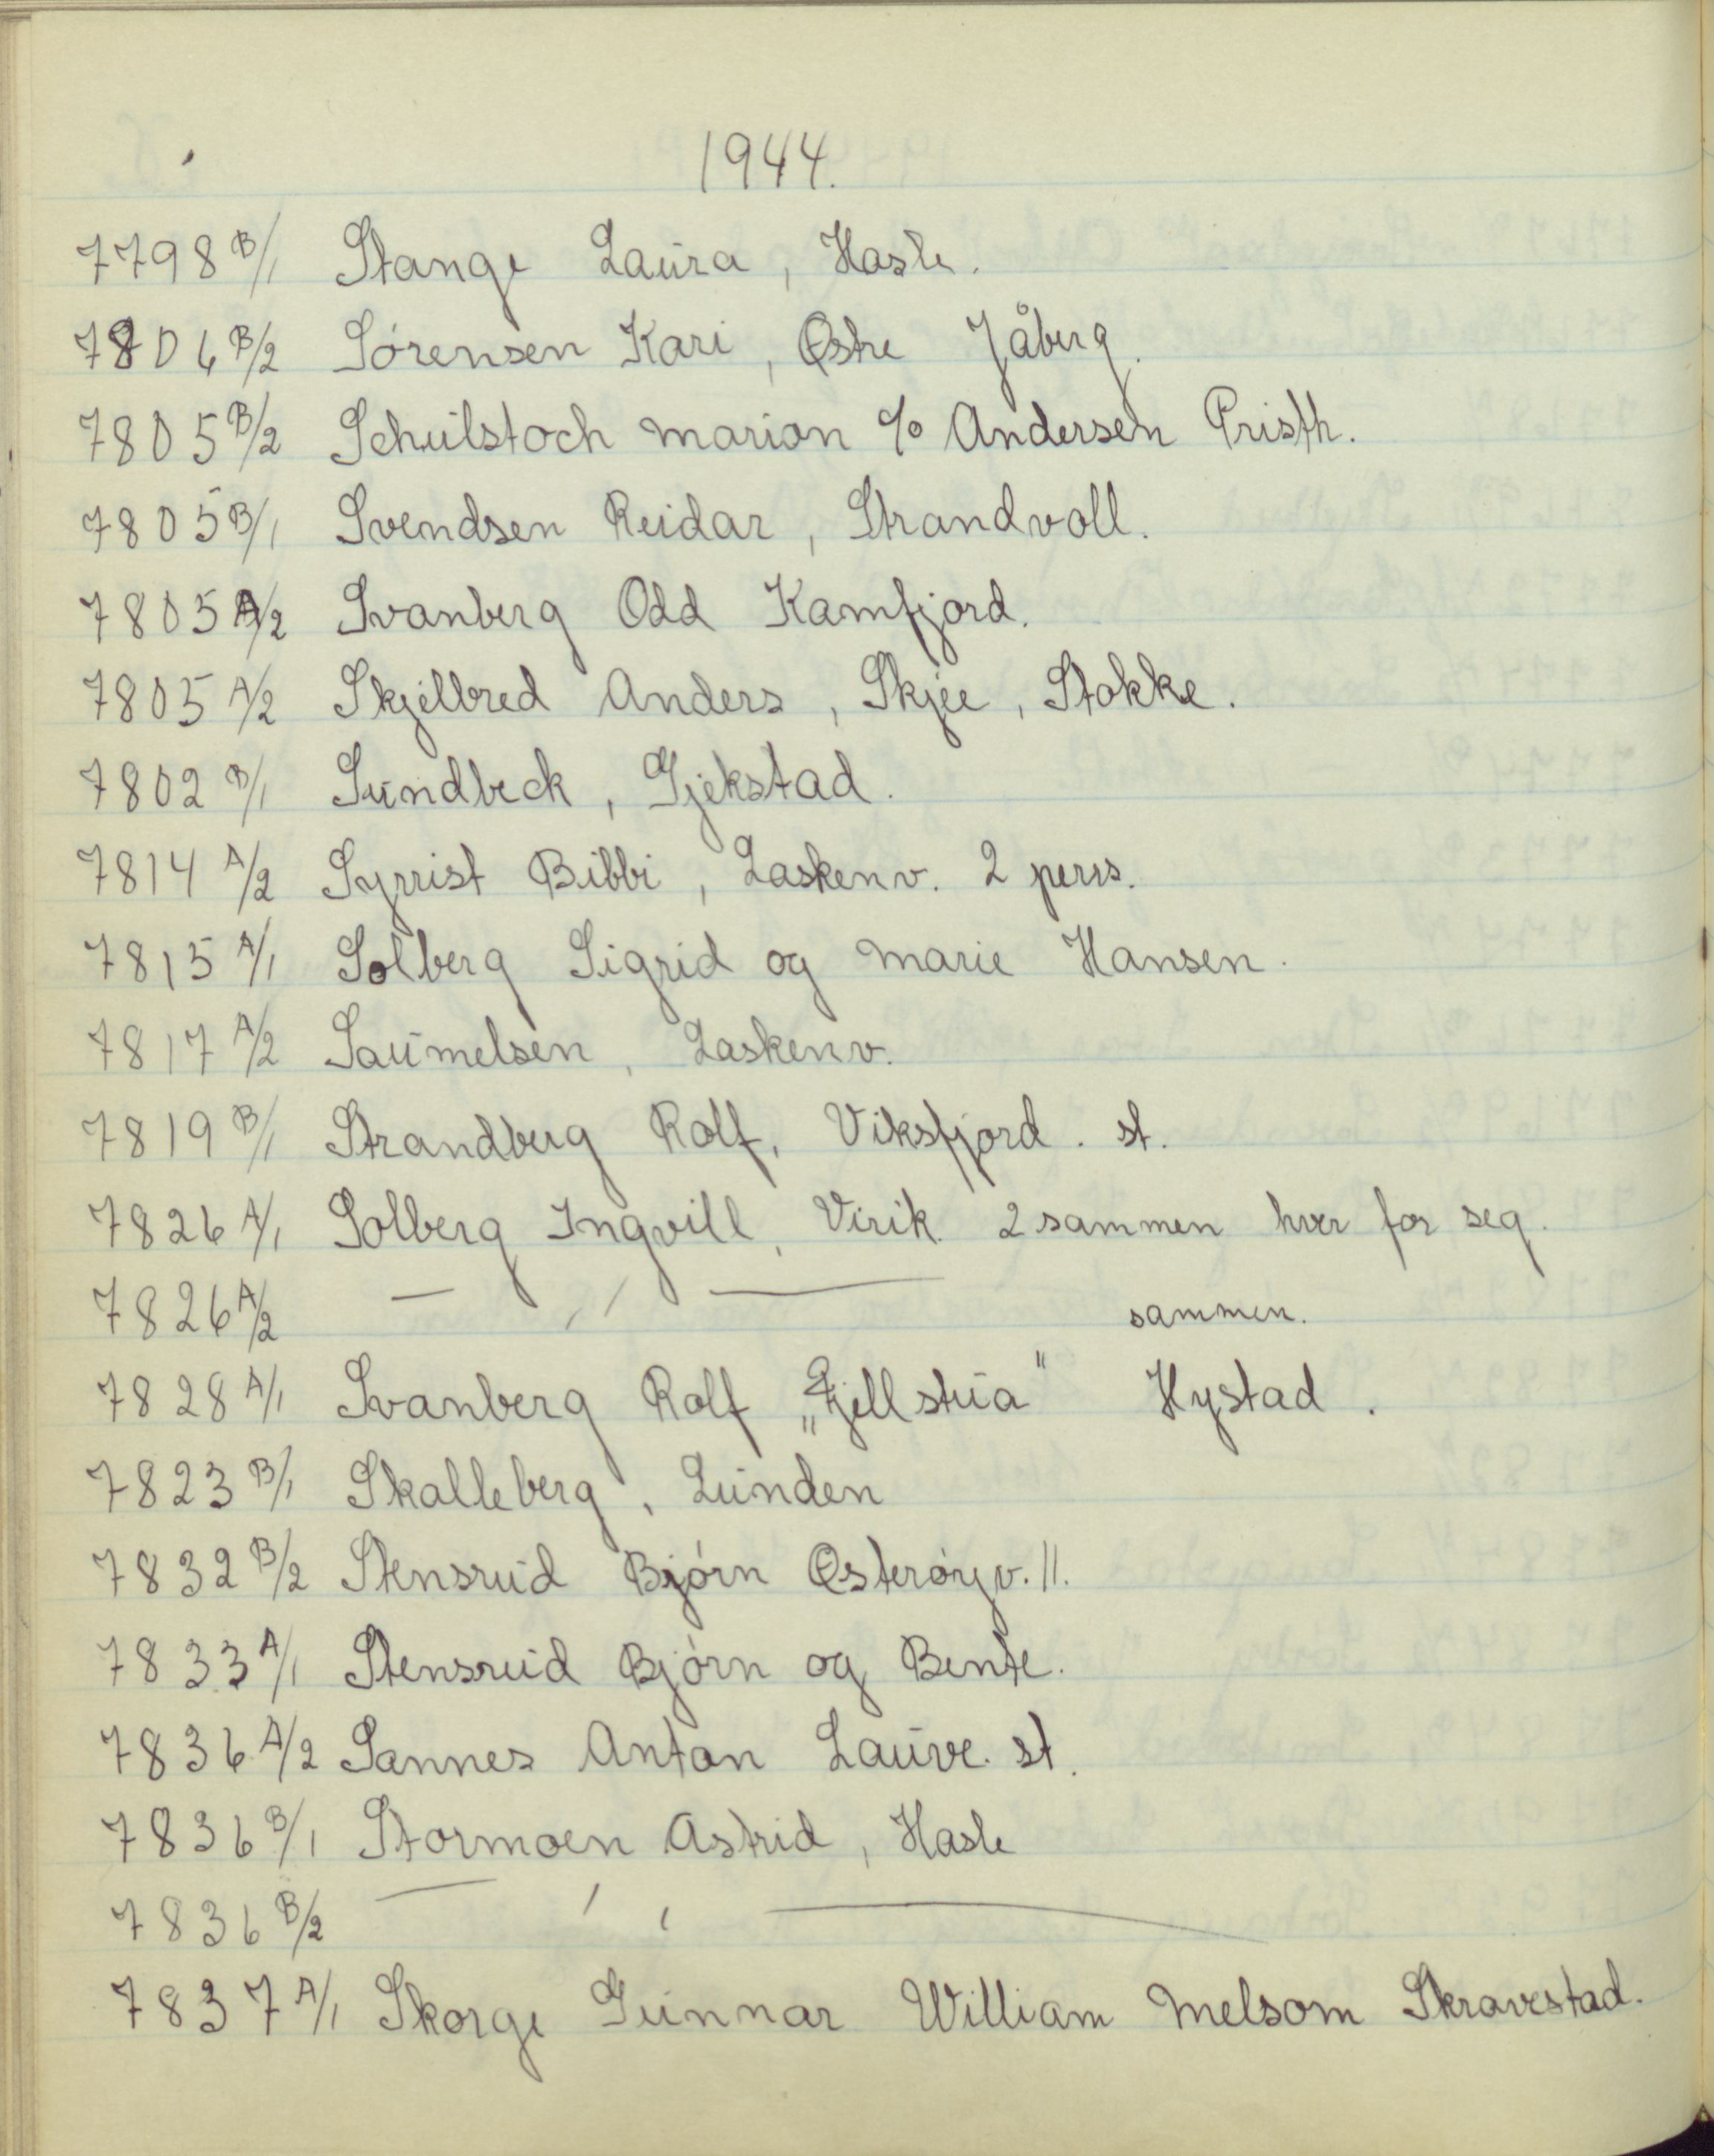 1944.
7798 B/1 Stange Laura, Hasle.
7806 B/2 Sørensen Kari, Østre Jåberg.
7805 B/2 Schulstoch Marion c/o Andersen Pristh.
7805 B/1 Svendsen Reidar, Strandvoll.
7805 A/2 Svanberg Odd Kamfjord.
7805 A/2 Skjelbred Anders, Skjee, Stokke.
7802 B/1 Sundbeck, Gjekstad.
7814 A/2 Syrrist Bibbi, Laskenv. 2 pers.
7815 A/1 Solberg Sigrid og Marie Hansen.
7817 A/2 Saumelsen, Laskenv.
7819 B/1 Strandberg Rolf, Viksfjord. st.
7826 A/1 Solberg Ingvill, Virik. 2 sammen hver for seg.
7826 A/2 — // — sammen.
7828 A/1 Svanberg Rolf „Fjellstua" Hystad.
7823 B/1 Skalleberg, Lunden
7832 B/2 Stensrud Bjørn Østerøyv. 11.
7833 A/1 Stensrud Bjørn og Bente.
7836 A/2 Sannes Anton Lauve. st.
7836 B/1 Stormoen Astrid, Hasle
7836 B/2 — // —
7837 A/1 Skorge Gunnar William Melsom Skravestad.